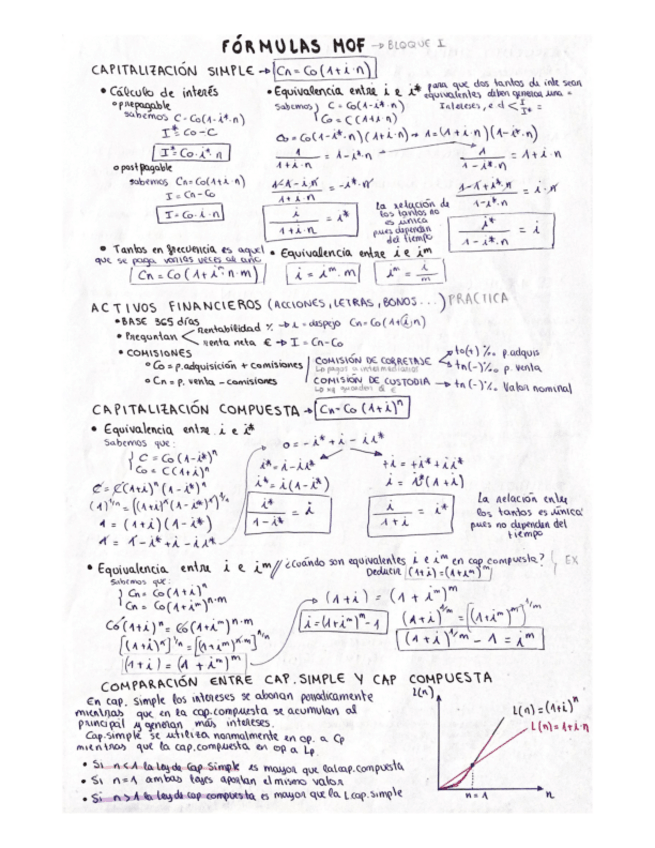 FÓRMULAS MOF → BLOQUE I
CAPITALIZACIÓN SIMPLE → Cn = Co(1+i·n)
• Cálculo de interés
o prepagable
sabemos C = Co(1-i*·n)
I* = Co-C
I* = Co·i*·n
o postpagable
sabemos Cn = Co(1+i·n)
I = Cn-Co
I = Co·i·n
• Equivalencia entre i e i* para que dos tantos de inte sean
equivalentes deben generar una =
Intereses, e d < I/I* =
sabemos { C = Co(1-i*·n)
Co = C(1+i·n)
Co = Co(1-i*·n)(1+i·n) → 1 = (1+i·n)(1-i*·n)
1/(1+i·n) = 1-i*·n → 1/(1-i*·n) = 1+i·n
(1-1-i·n)/(1+i·n) = -i*·n
(1-1+i*·n)/(1-i*·n) = i·n
i/(1+i·n) = i*
La relación de
los tantos no
es única
pues dependen
del tiempo
i*/(1-i*·n) = i
• Tantos en frecuencia es aquel
que se paga varias veces al año
Cn = Co(1+iᵐ·n·m)
• Equivalencia entre i e im
i = iᵐ·m
iᵐ = i/m
ACTIVOS FINANCIEROS (ACCIONES, LETRAS, BONOS...) PRÁCTICA
• BASE 365 días
• Preguntan < Rentabilidad % → i = despejo Cn = Co(1+i·n)
renta neta € → I = Cn-Co
• COMISIONES
o Co = p.adquisición + comisiones
o Cn = p. venta - comisiones
COMISIÓN DE CORRETAJE → to(+) ‰ p.adquis
Lo pagas a intermediarios → tn(-)‰ p. venta
COMISIÓN DE CUSTODIA → tn(-)‰ Valor nominal
CAPITALIZACIÓN COMPUESTA → Cn = Co(1+i)ⁿ
• Equivalencia entre i e i*
Sabemos que:
{ C = Co(1-i*)ⁿ
Co = C(1+i)ⁿ
C = C(1+i)ⁿ(1-i*)ⁿ
(1)^1/n = [(1+i)ⁿ(1-i*)ⁿ]^1/n
1 = (1+i)(1-i*)
1 = 1-i*+i-ii*
0 = -i*+i-ii*
i* = i-ii*
i* = i(1-i*)
i*/(1-i*) = i
+i = +i*+ii*
i = i*(1+i)
i/(1+i) = i*
La relación entre
los tantos es única
pues no dependen del
tiempo
• Equivalencia entre i e im // ¿Cuándo son equivalentes i e im en cap compuesta? } EX
Deducir (1+i) = (1+iᵐ)ᵐ
Sabemos que:
{ Cn = Co(1+i)ⁿ
Cn = Co(1+iᵐ)ⁿ·ᵐ
Co(1+i)ⁿ = Co(1+iᵐ)ⁿ·ᵐ
[(1+i)ⁿ]^1/n = [(1+iᵐ)ⁿ·ᵐ]^1/n
(1+i) = (1+iᵐ)ᵐ
→ (1+i) = (1+iᵐ)ᵐ
i = (1+iᵐ)ᵐ-1
(1+i)^1/m = [(1+iᵐ)ᵐ]^1/m
(1+i)^1/m - 1 = iᵐ
COMPARACIÓN ENTRE CAP. SIMPLE Y CAP COMPUESTA
En cap. simple los intereses se abonan periodicamente
mientras que en la cap.compuesta se acumulan al
principal y generan más intereses.
Cap.simple se utiliza normalmente en op. a Cp
mientras que la cap.compuesta en op a Lp.
• Si n<1 la ley de Cap Simple es mayor que la lcap.compuesta
• Si n=1 ambas leyes aportan el mismo valor
• Si n>1 la ley de cap compuesta es mayor que la Lcap.simple
L(n)
L(n) = (1+i)ⁿ
L(n) = 1+i·n
n=1
n